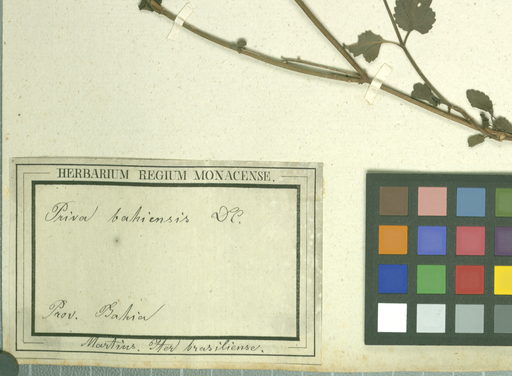 HERBARIUM REGIUM MONACENSE.
Priva bahiensis DC.
Prov. Bahia
Martius. Iter brasiliense.